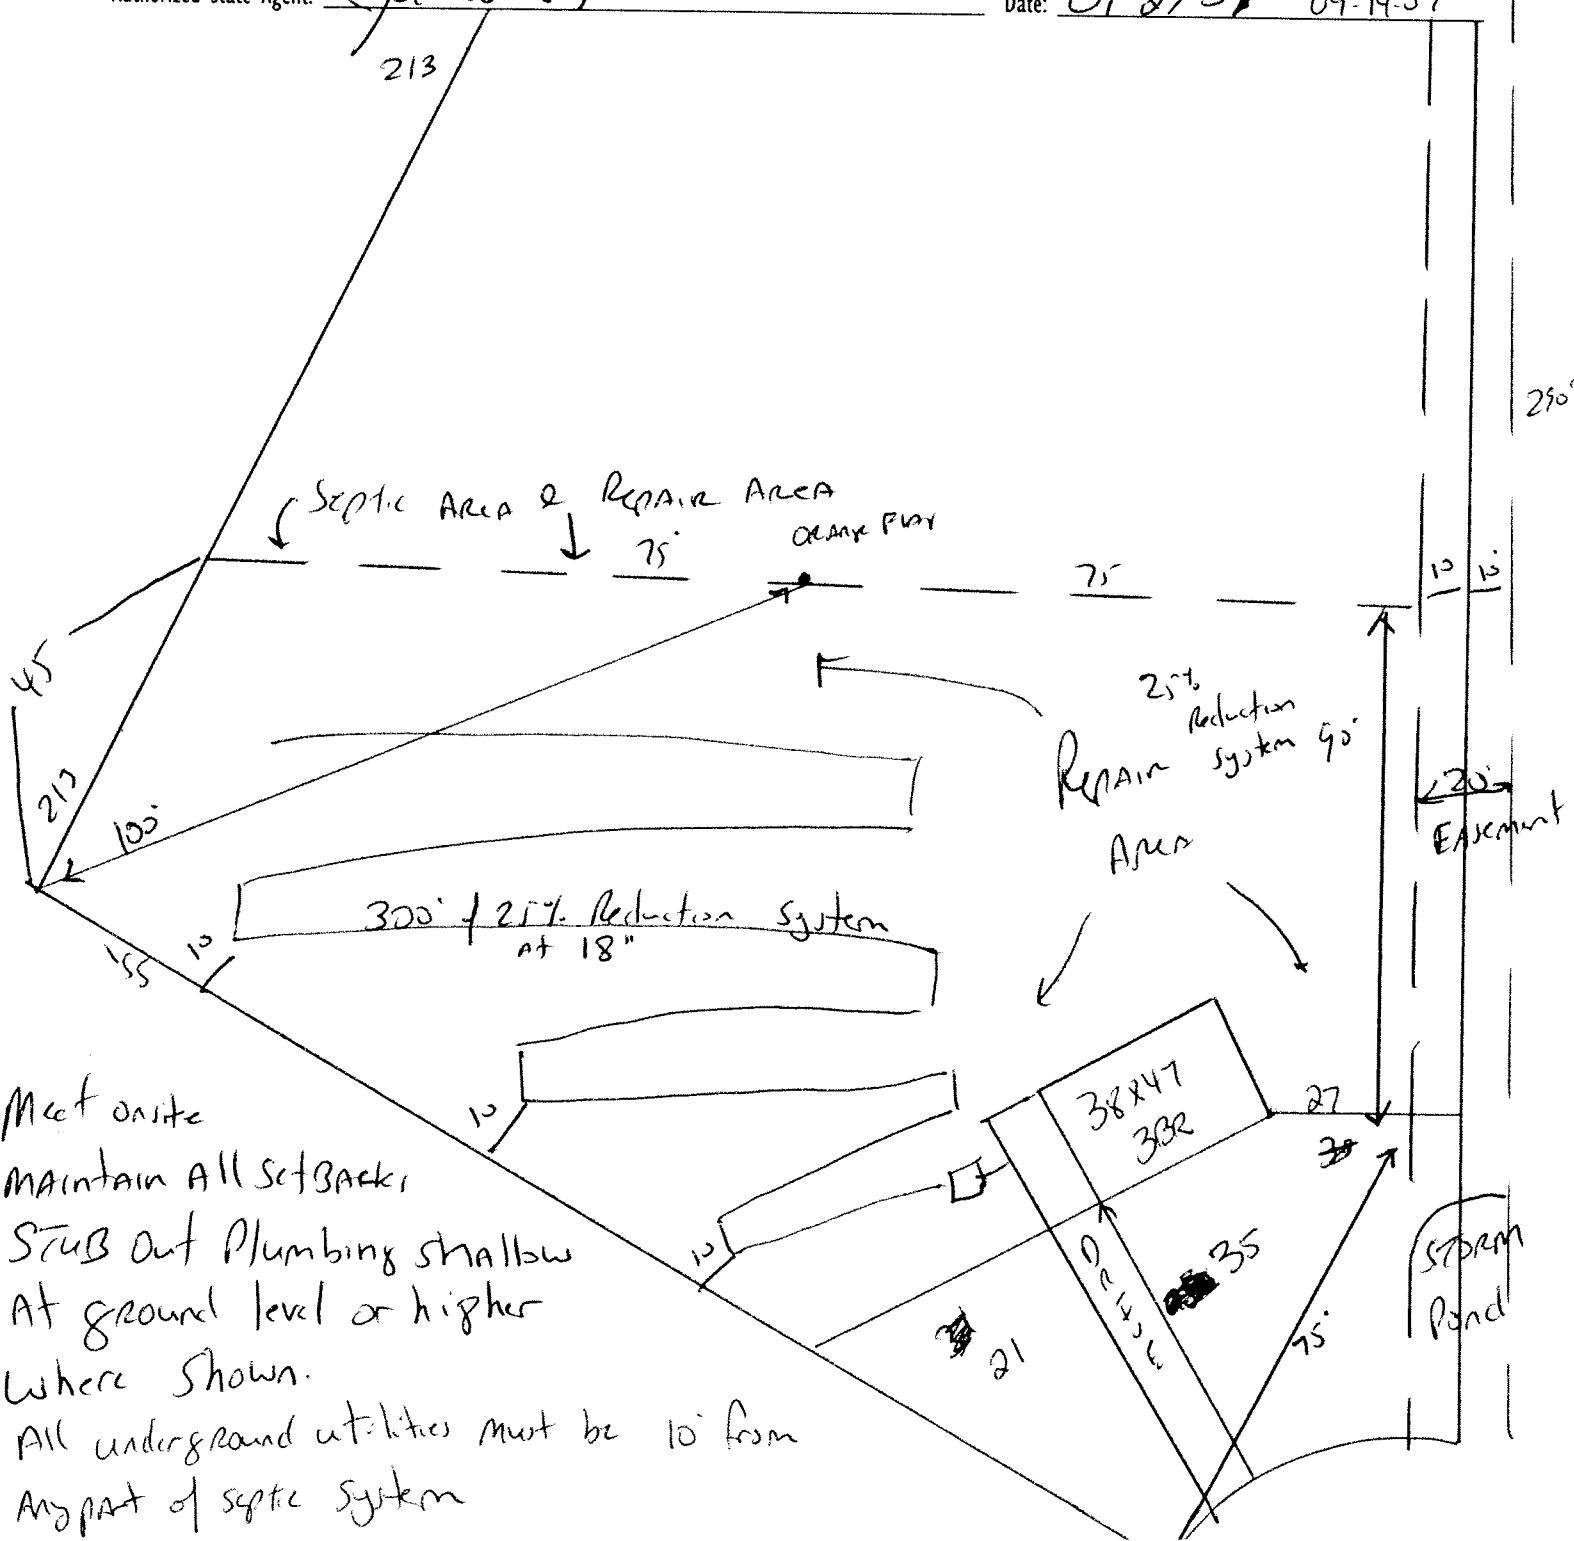 Authorized State Agent:
Date:
09-19-07
213
290'
Septic Area & Repair Area
75'
Orange Flag
75
10
10'
45
25%
Reduction
System
90'
Repair
Area
20'
Easement
213
100'
300' of 25% Reduction System
At 18"
155
10
10
10
38x47
3BR
27
35
Drive
21
95'
Storm
Pond
Meet onsite
Maintain All SetBacks
STUB Out Plumbing shallow
At ground level or higher
Where Shown.
All underground utilities must be 10' from
Any part of septic system